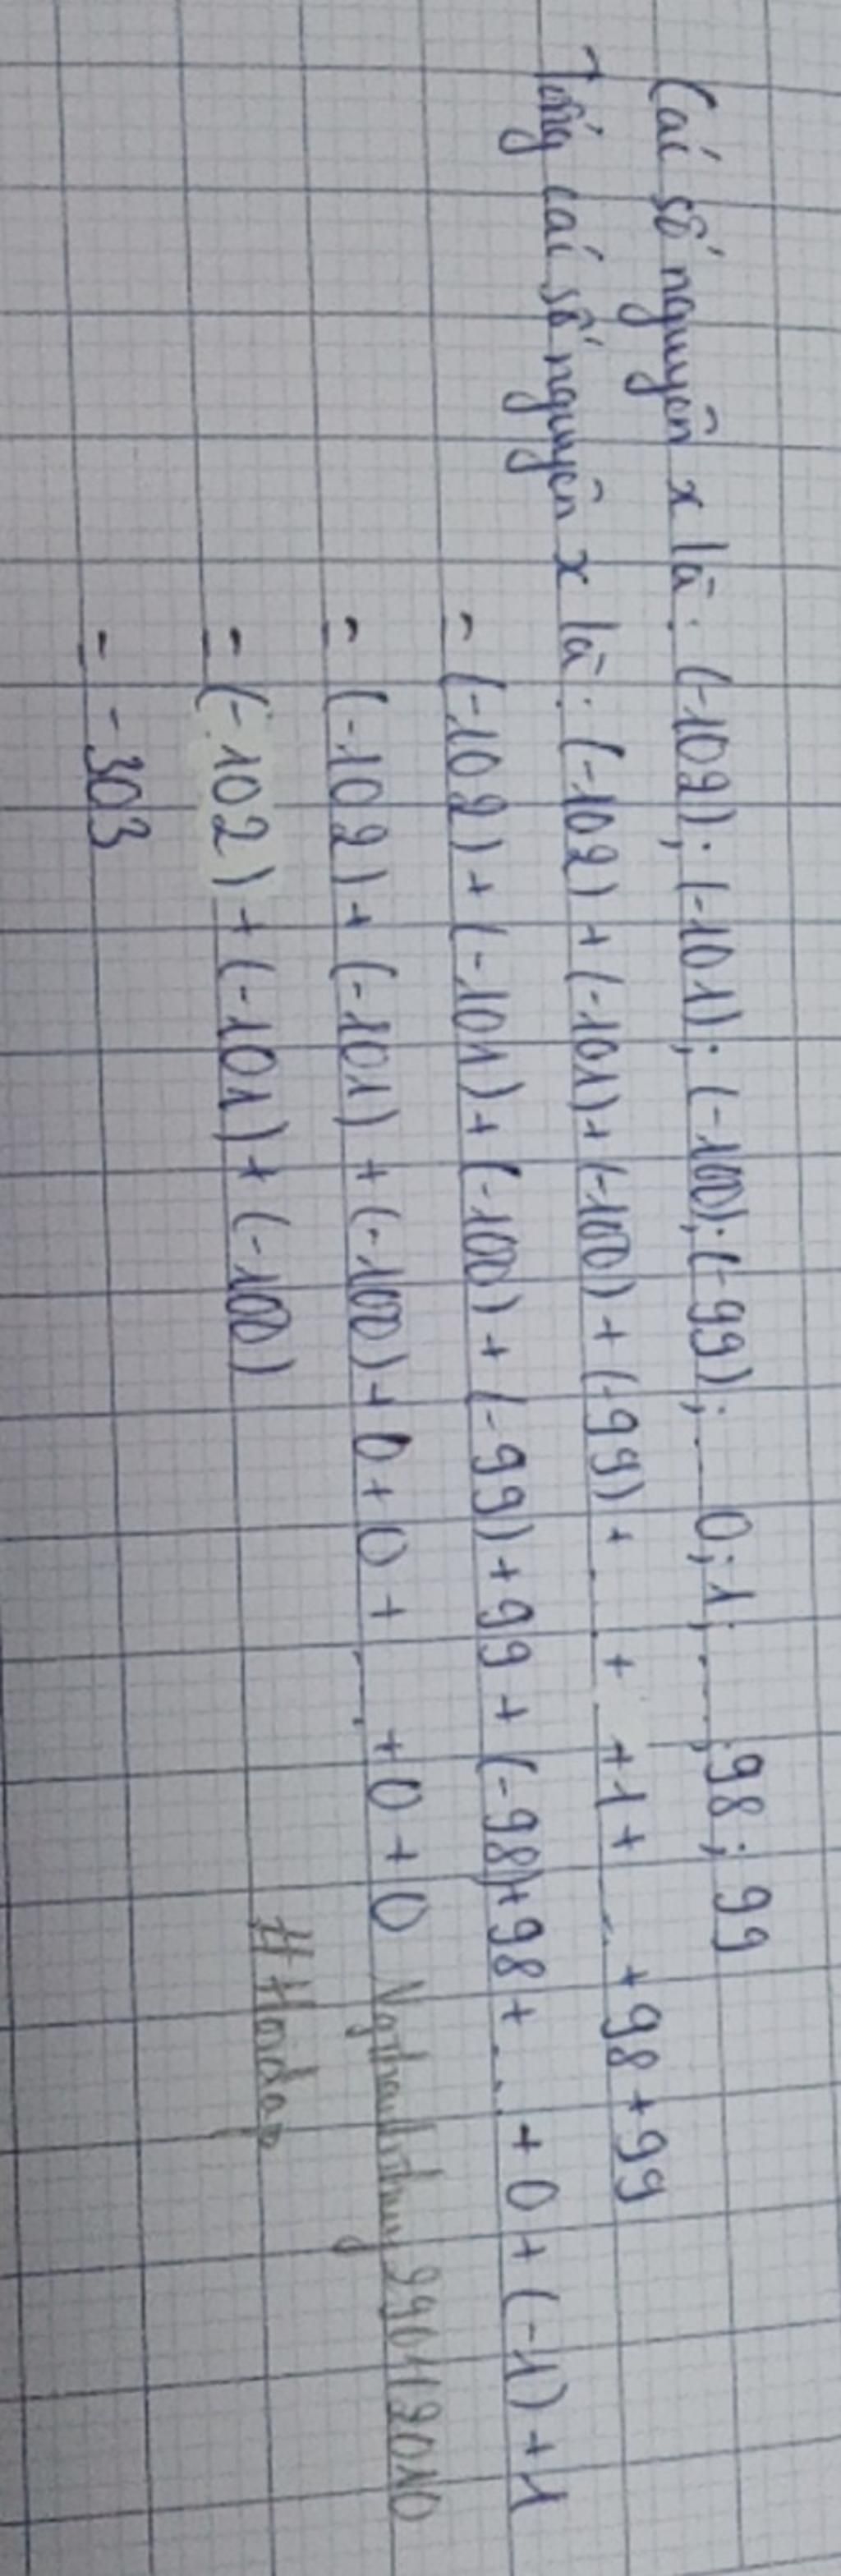 Các số nguyên x là: (-102); (-101); (-100); (-99); ... 0; 1; ...; 98; 99
Tổng các số nguyên x là: (-102) + (-101) + (-100) + (-99) + ... + +1 + ... + 98 + 99
= (-102) + (-101) + (-100) + (-99) + 99 + (-98) + 98 + ... + 0 + (-1) + 1
= (-102) + (-101) + (-100) + 0 + 0 + ... + 0 + 0
= (-102) + (-101) + (-100)
= -303